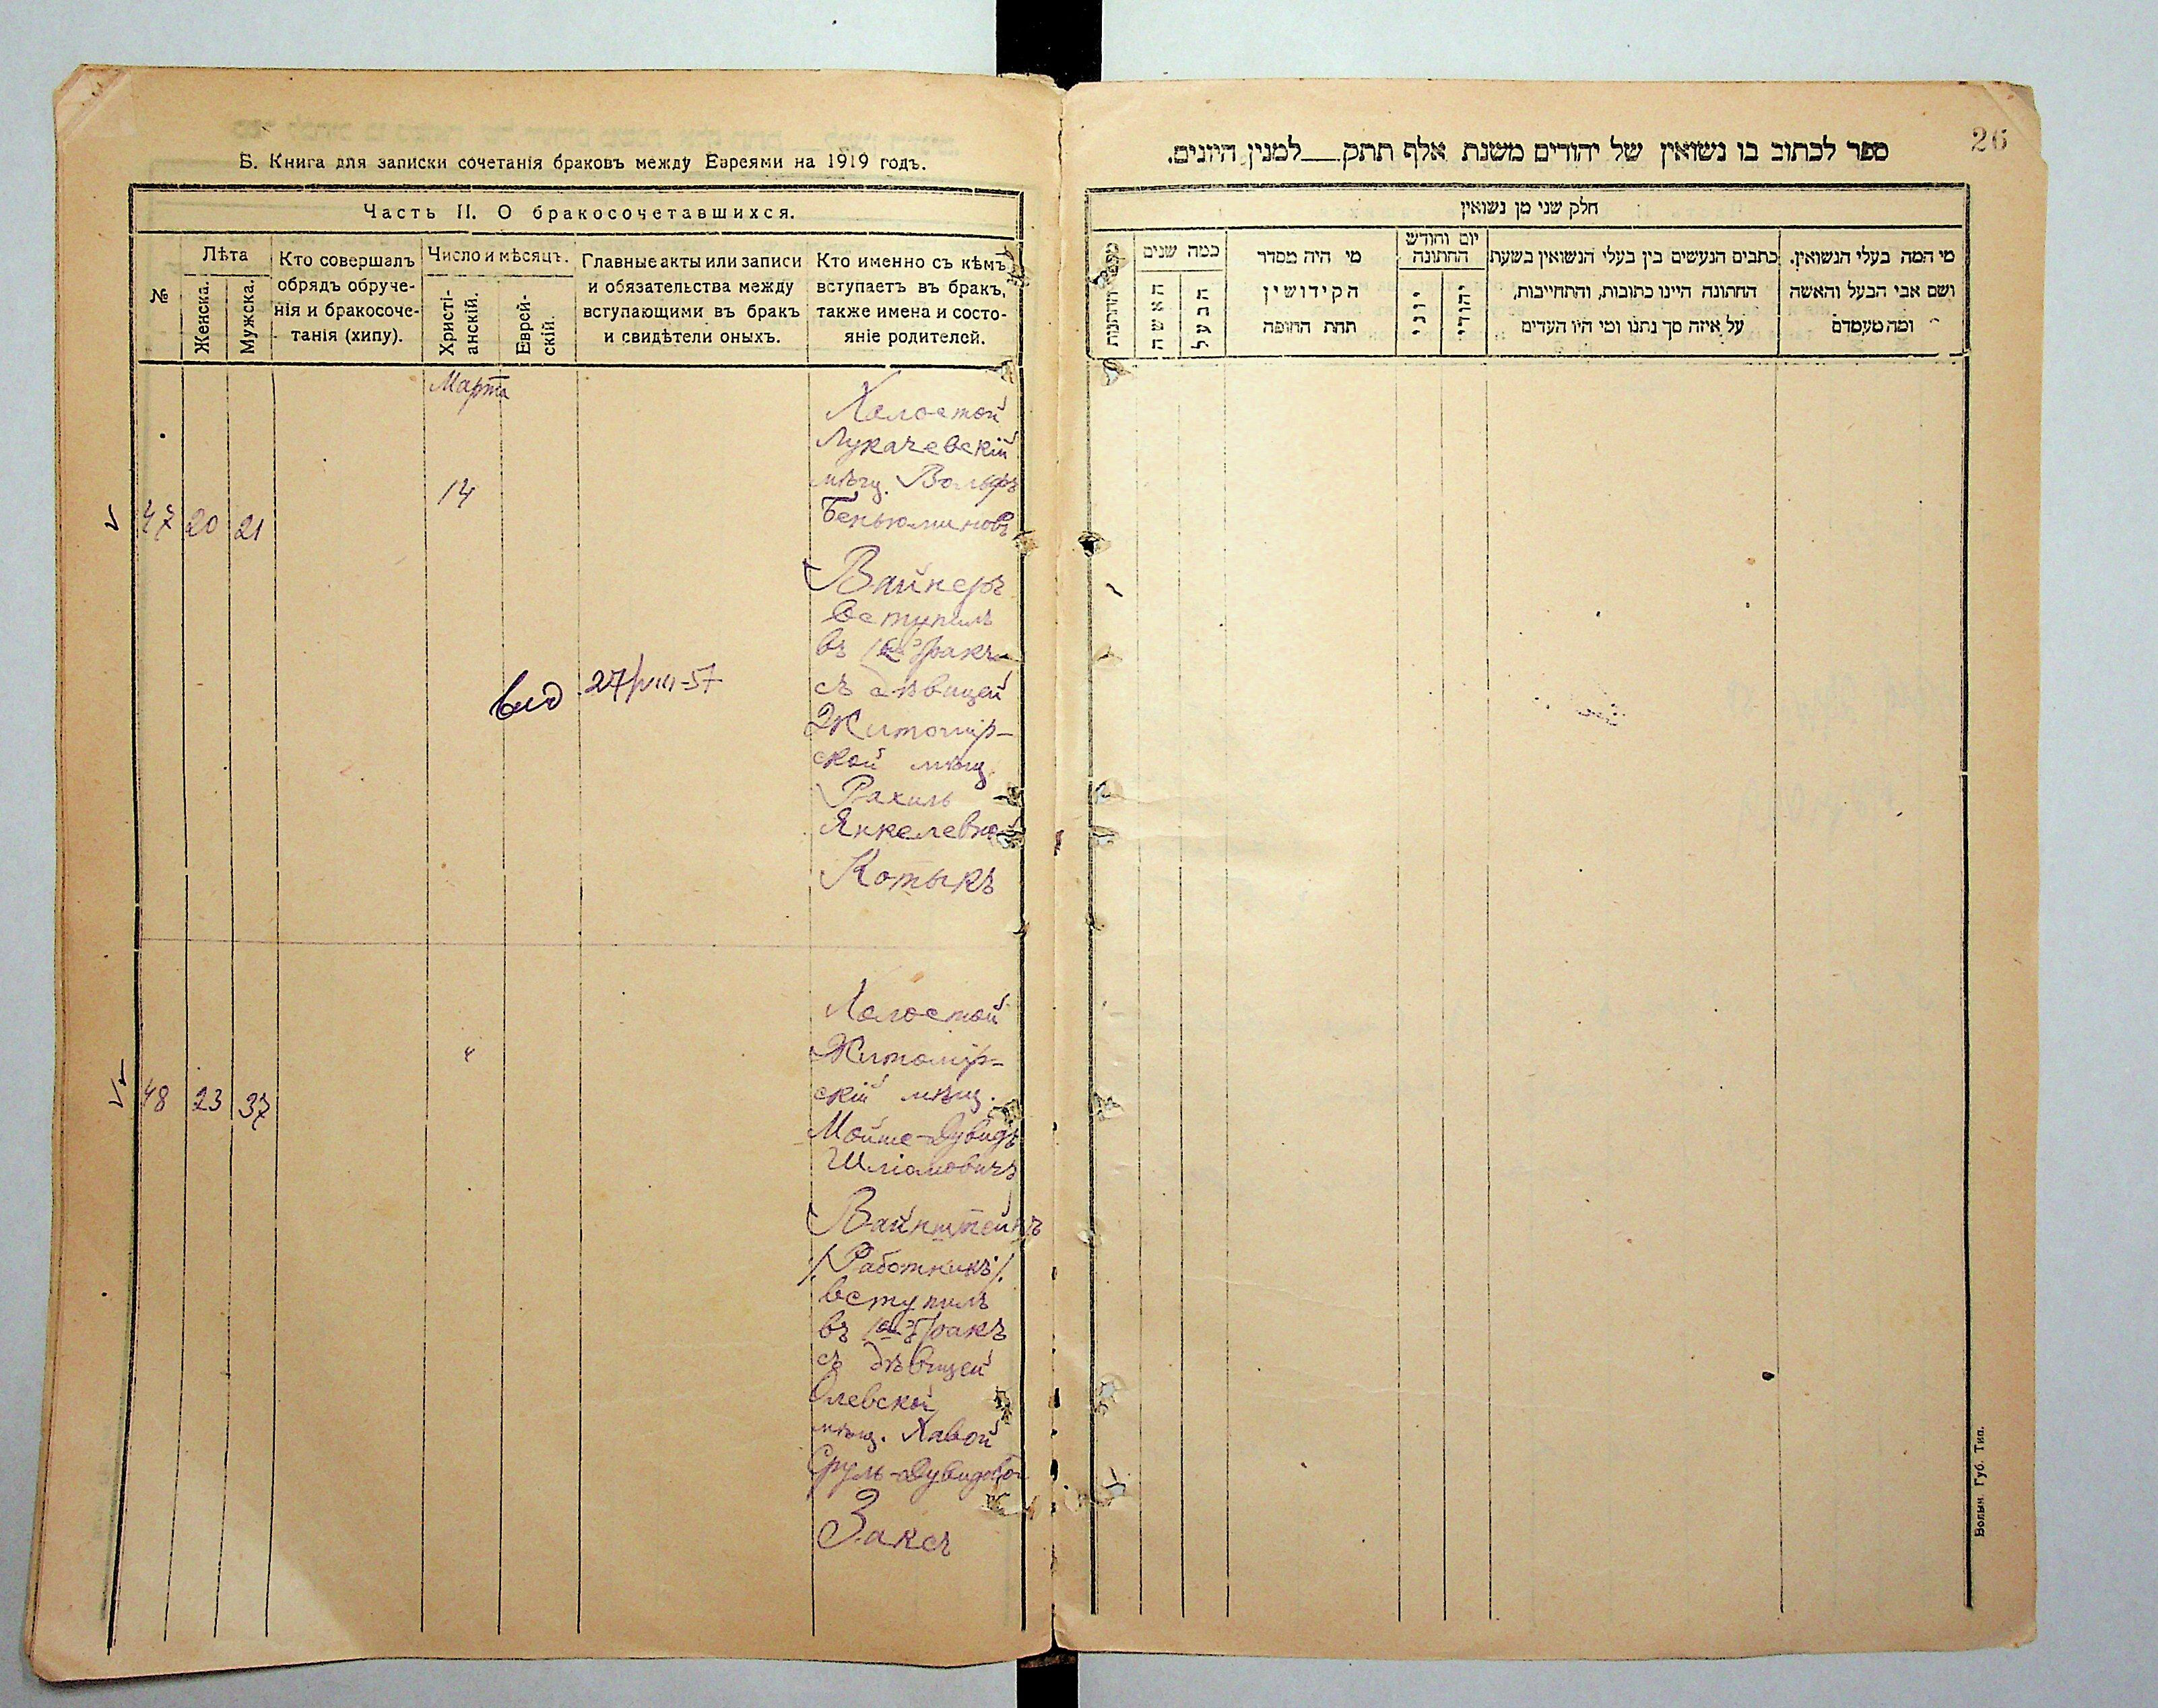 Б. Книга для записки сочетанія браковъ между Евреями на 1919 годъ.
Часть II. О бракосочетавшихся.
№
Лѣта
Женска.
Мужска.
Кто совершалъ
обрядъ обруче-
нія и бракосоче-
танія (хипу).
Число и мѣсяцъ.
Христі-
анскій.
Еврей-
скій.
Главные акты или записи
и обязательства между
вступающими въ бракъ
и свидѣтели оныхъ.
Кто именно съ кѣмъ
вступаетъ въ бракъ,
также имена и состо-
яніе родителей.
Марта
47 20 21
14
Холостой
Лукачевскій
мѣщ. Вольфъ
Беньюминовъ
Вайнеръ
вступилъ
въ 1ый бракъ
съ дѣвицей
Житомір-
ской мѣщ.
Рахиль
Янкелевна
Котыкъ
вид 27/VIII-57
48 23 37
"
Холостой
Житомір-
скій мѣщ.
Мойше-Дувидъ
Шліомовичъ
Вайнштейнъ
/Работникъ/.
вступилъ
въ 1ый бракъ
съ дѣвицей
Олевской
мѣщ. Хавой
Сруль-Дувидовой
Заксъ
26
ספר לכתוב בו נשואין של יהודים משנת אלף תתק___למנין היונים.
חלק שני מן נשואין
מספר החתונות
כמה שנים
האשה
הבעל
מי היה מסדר
הקידושין
תחת החופה
יום וחודש
החתונה
יוני
יהודי
כתבים הנעשים בין בעלי הנשואין בשעת
החתונה היינו כתובות, והתחייבות,
על איזה סך נתנו ומי היו העדים
מי המה בעלי הנשואין.
ושם אבי הבעל והאשה
ומה מעמדם
Волын. Губ. Тип.